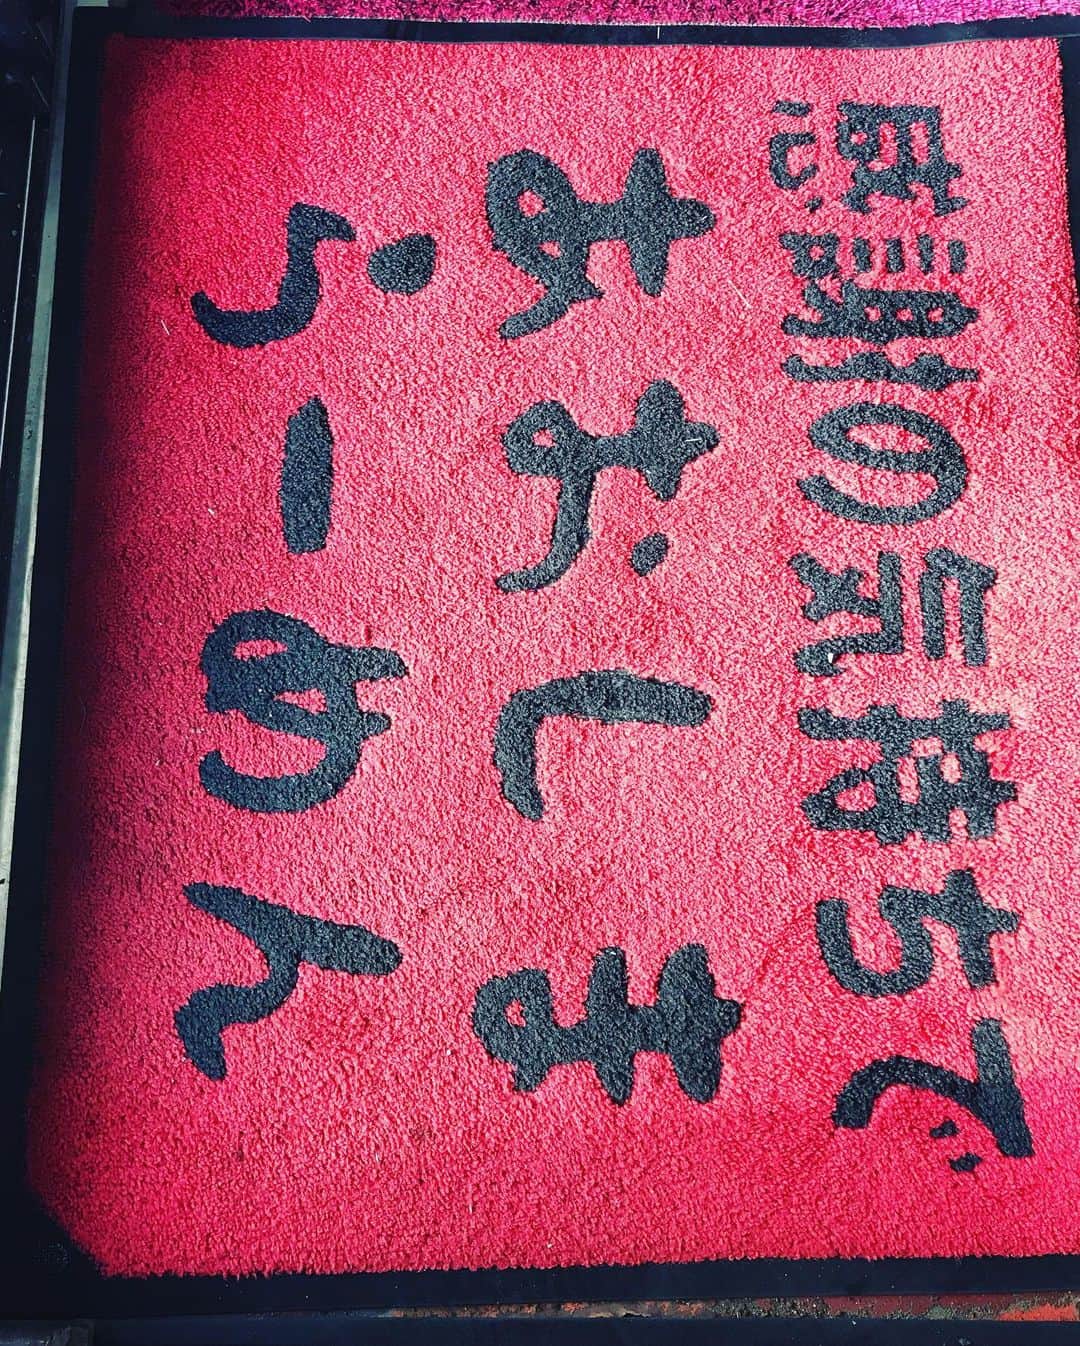 感謝の気持ちで
あおしま
らーめん